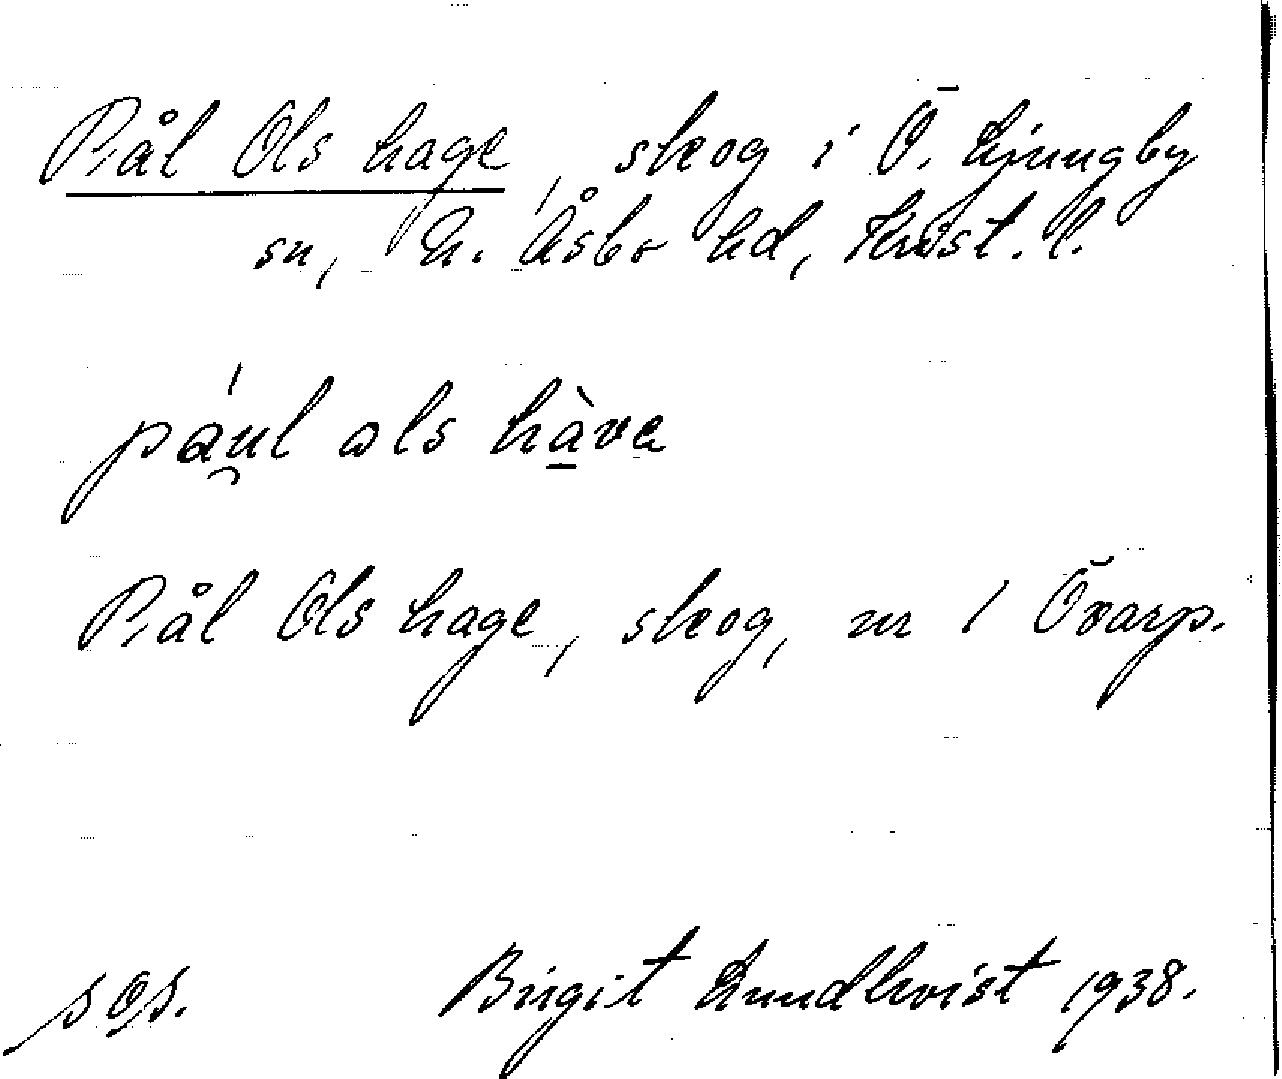 Pål Ols hage, skog i Ö. Ljungby
sn, N. Åsbo hd, Krist. l.
páu̯l als hàva
Pål Ols hage, skog, nr 1 Övarp.
sgs.
Birgit Lundkvist 1938.